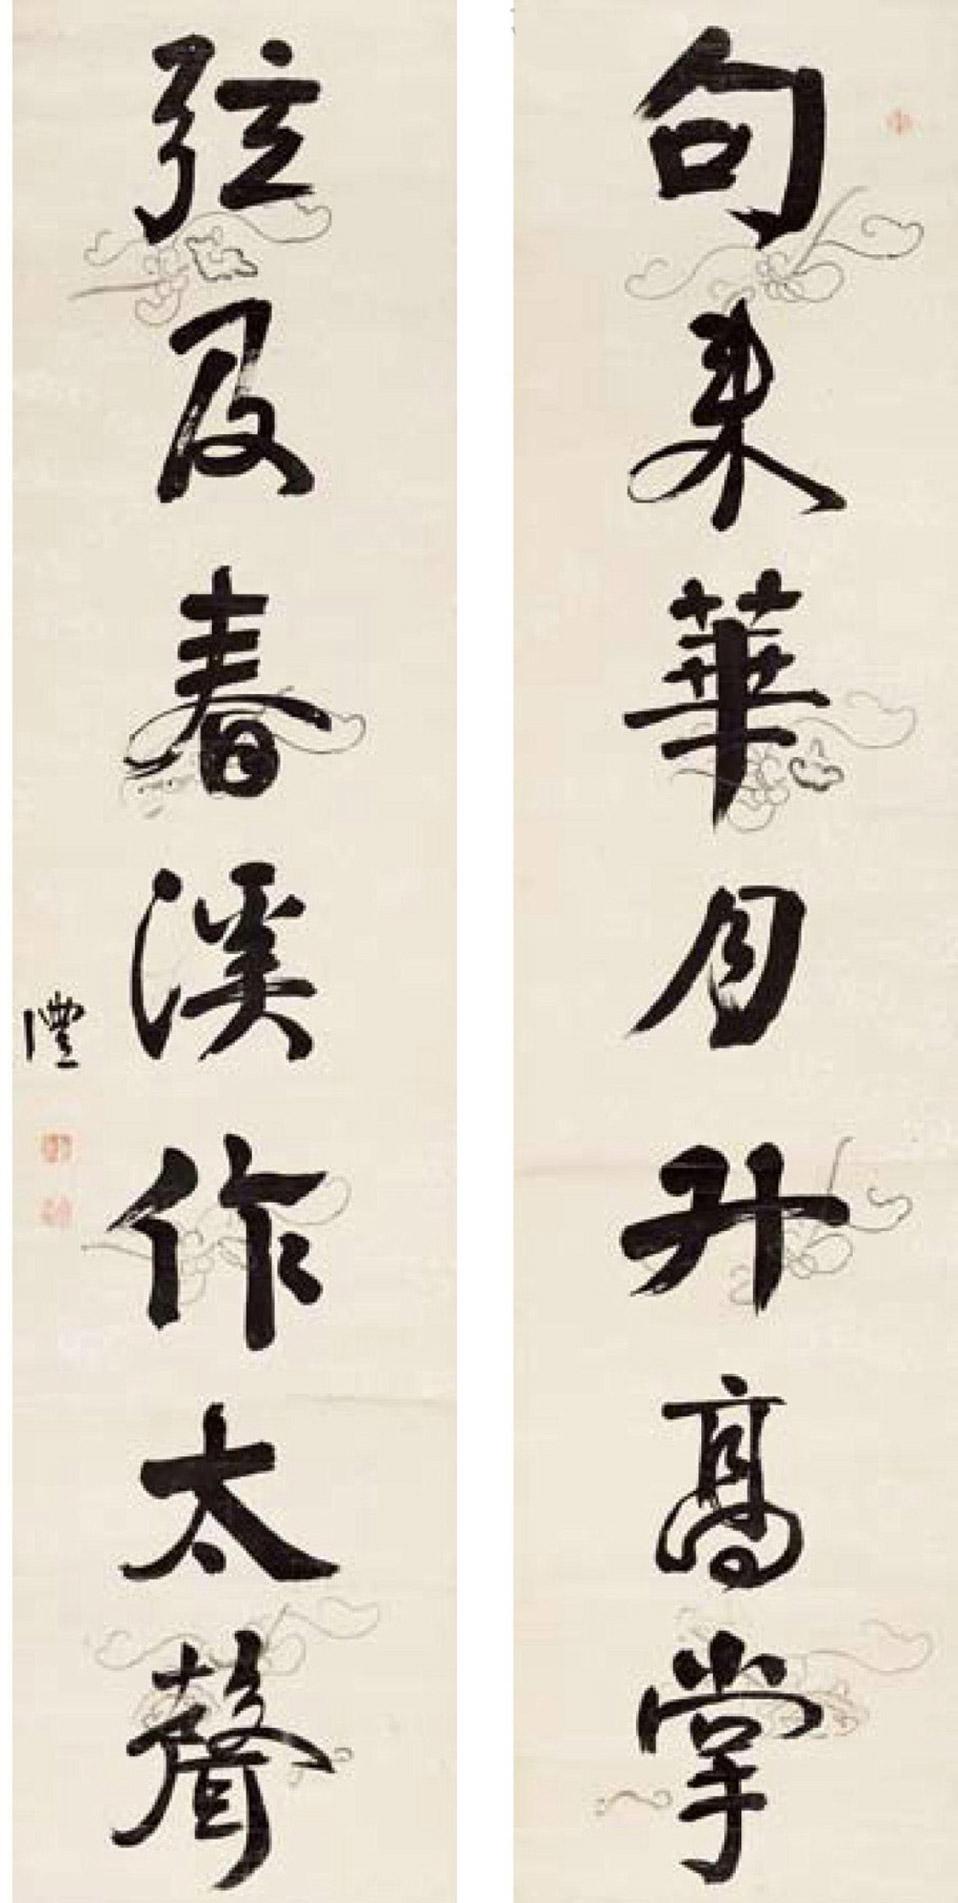 句来華月升高掌
弦及春溪作太聲
澧